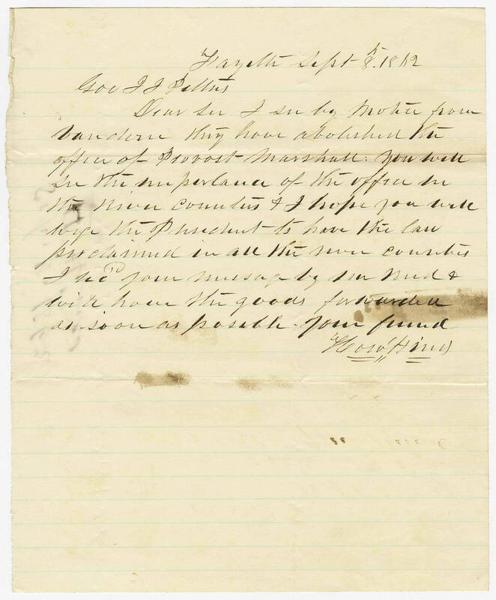 Fayette Sept 8th 1862
Gov J J Pettus
Dear Sir I see by Notice from
Vandorn they have abolished the
office of Provost Marshall. You will
see the importance of the office in
the river counties & I hope you will
urge the President to have the law
proclaimed in all the river counties
I recd your message by Mr &
will have the goods forwarded
as soon as posible. Your friend
Hinds